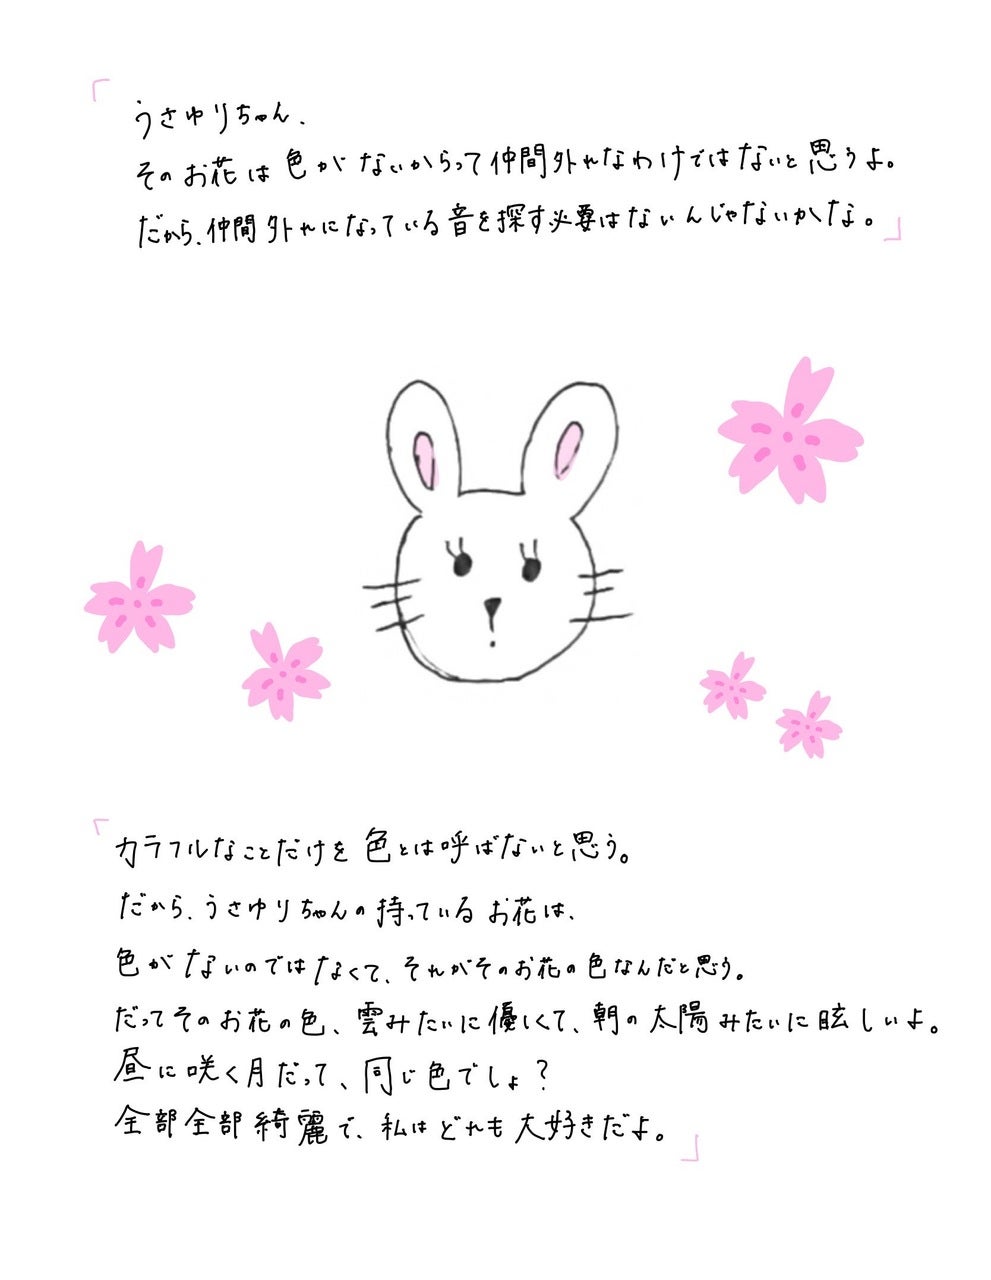 「うさゆりちゃん、
そのお花は色がないからって仲間外れなわけではないと思うよ。
だから、仲間外れになっている音を探す必要はないんじゃないかな。」
「カラフルなことだけを色とは呼ばないと思う。
だから、うさゆりちゃんの持っているお花は、
色がないのではなくて、それがそのお花の色なんだと思う。
だってそのお花の色、雲みたいに優しくて、朝の太陽みたいに眩しいよ。
昼に咲く月だって、同じ色でしょ?
全部全部綺麗で、私はどれも大好きだよ。」